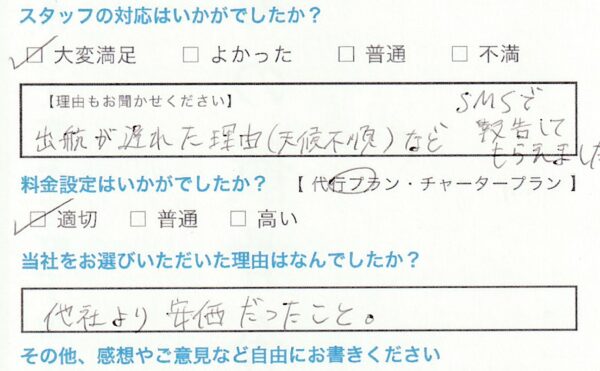 スタッフの対応はいかがでしたか？
☑ 大変満足 □ よかった □ 普通 □ 不満
【理由もお聞かせください】
出航が遅れた理由(天候不順)など
SMSで
報告して
もらえました
料金設定はいかがでしたか？ 【 代行プラン・チャータープラン 】
☑ 適切 □ 普通 □ 高い
当社をお選びいただいた理由はなんでしたか？
他社より安価だったこと。
その他、感想やご意見など自由にお書きください